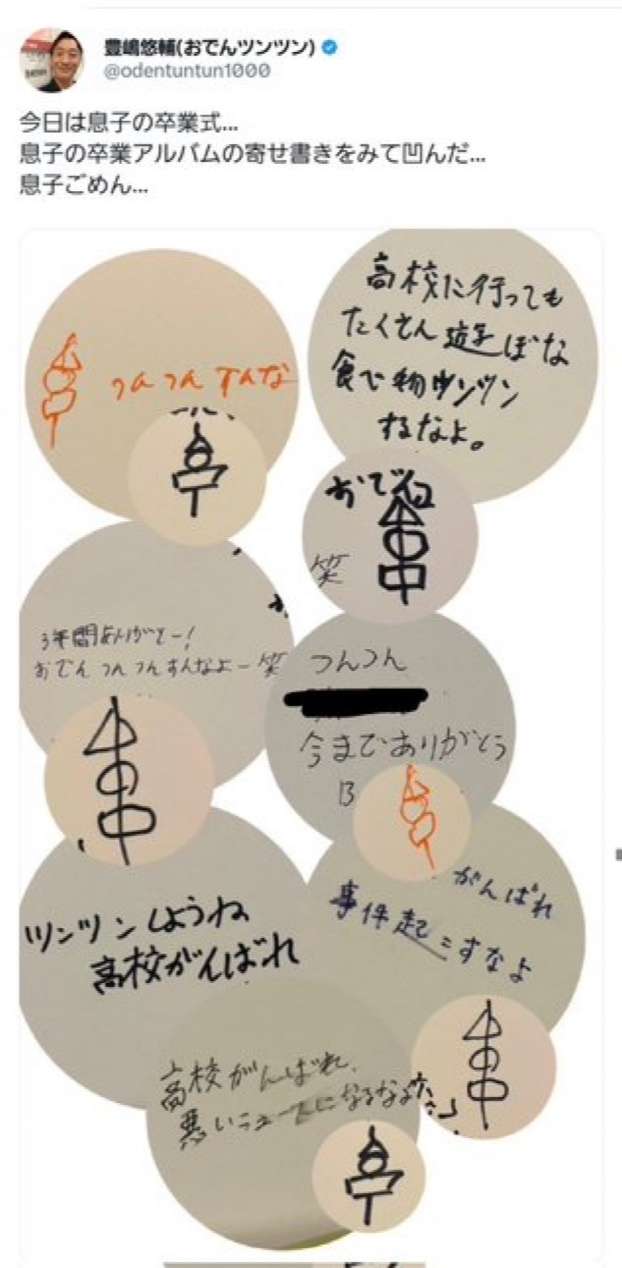 豊嶋悠輔(おでんツンツン)
@odentuntun1000
今日は息子の卒業式...
息子の卒業アルバムの寄せ書きをみて凹んだ...
息子ごめん...
つんつんすんな
高校に行っても
たくさん遊ぼな
食べ物ツンツン
するなよ。
おでん
笑
3年間ありがとー!
おでんつんつんすんなよー笑
つんつん
今までありがとう
がんばれ
事件起こすなよ
ツンツンしようね
高校がんばれ
高校がんばれ、
悪いニュースになるなよ